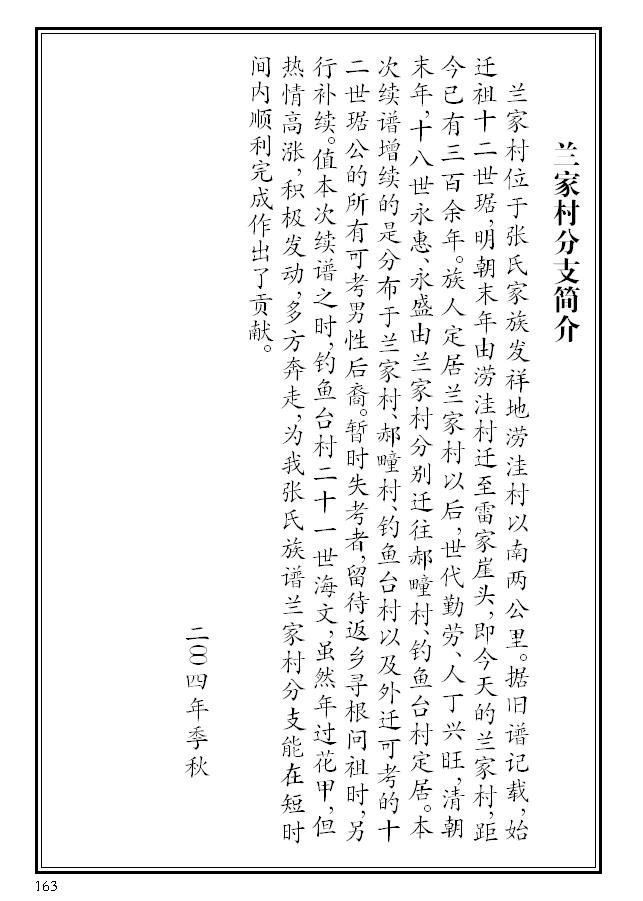 兰家村分支简介
兰家村位于张氏家族发祥地涝洼村以南两公里。据旧谱记载,始
迁祖十二世琚,明朝末年由涝洼村迁至雷家崖头,即今天的兰家村,距
今已有三百余年。族人定居兰家村以后,世代勤劳、人丁兴旺,清朝
末年,十八世永惠、永盛由兰家村分别迁往郝疃村、钓鱼台村定居。本
次续谱增续的是分布于兰家村、郝疃村、钓鱼台村以及外迁可考的十
二世琚公的所有可考男性后裔。暂时失考者,留待返乡寻根问祖时,另
行补续。值本次续谱之时,钓鱼台村二十一世海文,虽然年过花甲,但
热情高涨,积极发动,多方奔走,为我张氏族谱兰家村分支能在短时
间内顺利完成作出了贡献。
二〇〇四年季秋
163